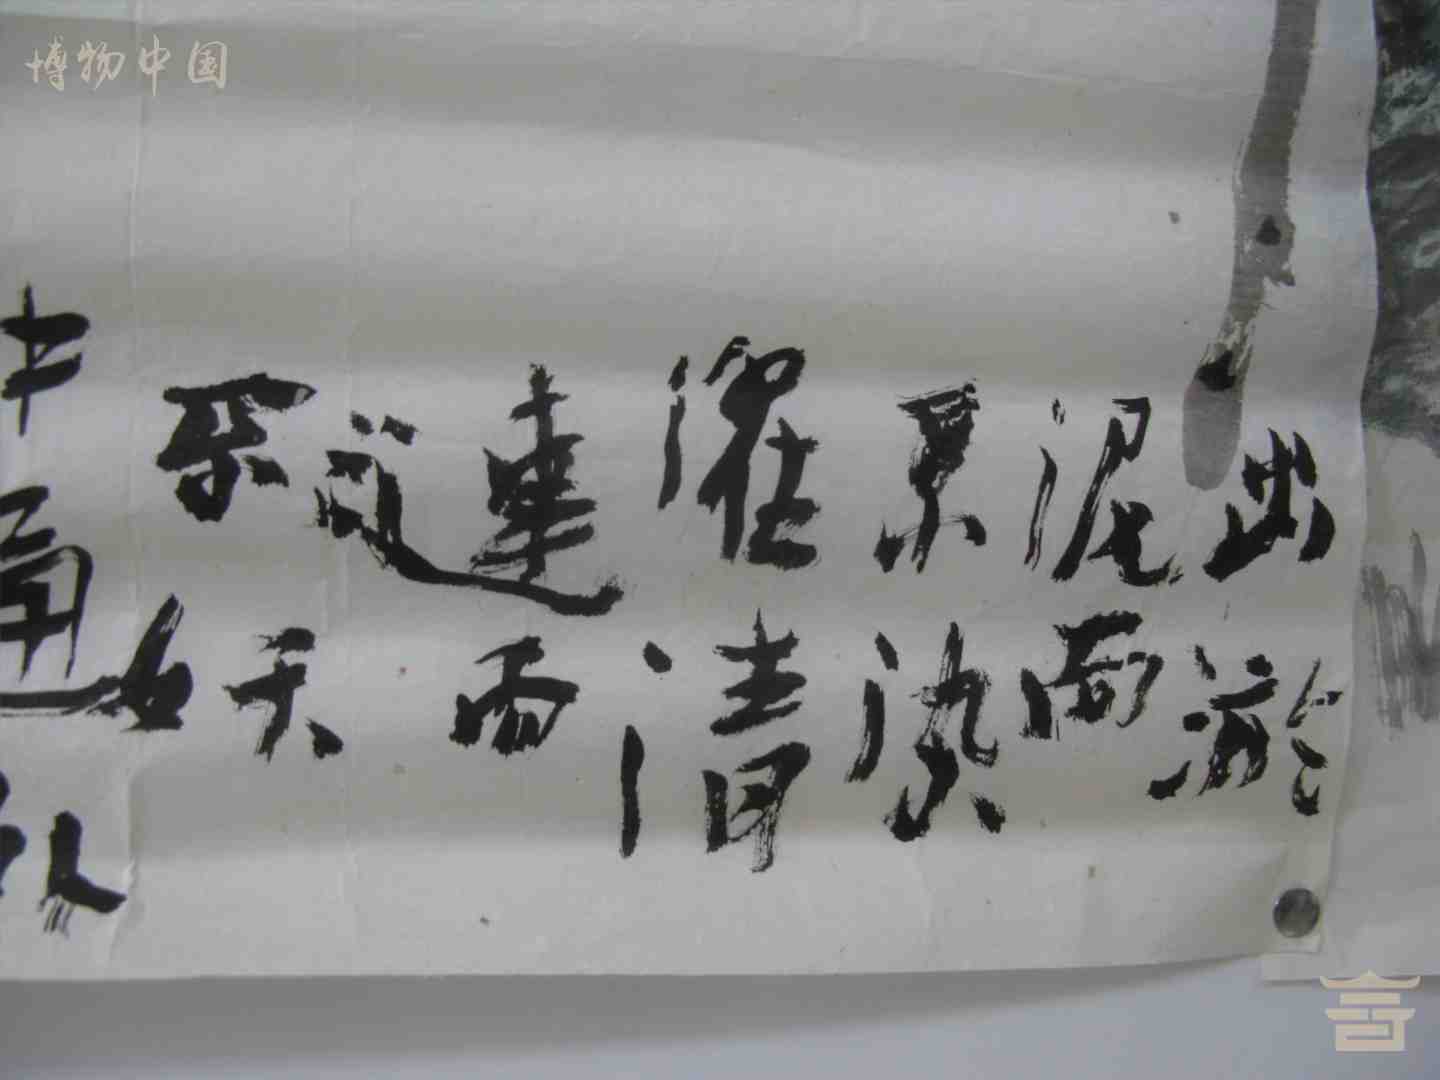 博物中国
出淤
泥而
不染
濯清
漣而
不妖
中通外